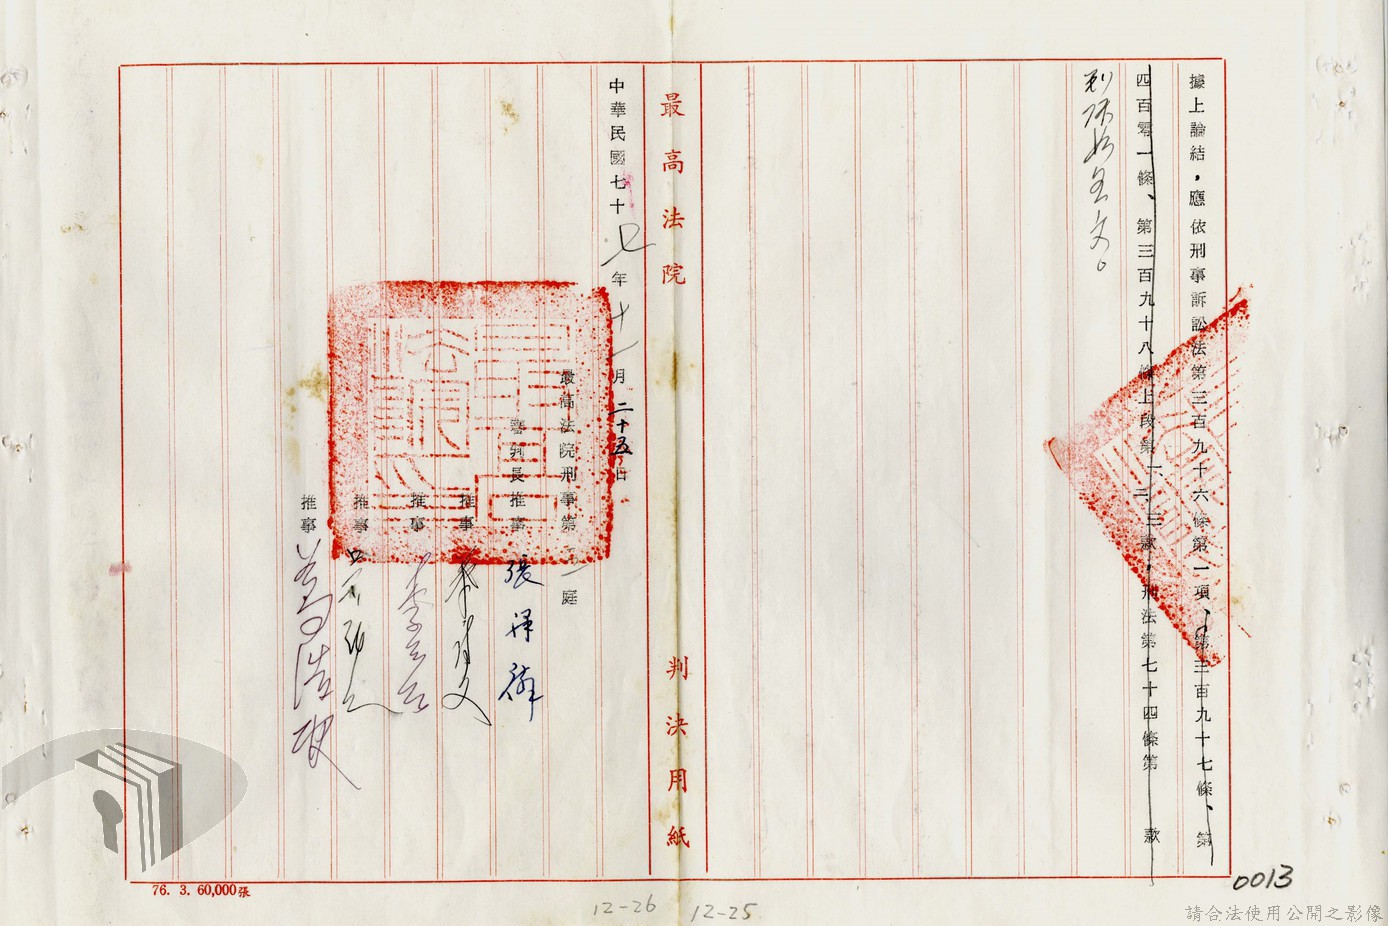 據上論結，應依刑事訴訟法第三百九十六條第一項、第三百九十七條、第
四百零一條、第三百九十八條上段第一、二、三款，刑法第七十四條第　款
判決如主文。
最高法院　判決用紙
中華民國七十七年十一月二十五日
最高法院刑事第　庭
審判長推事 張祥麟
推事
推事
推事
推事
76. 3. 60,000張
0013
12-26 12-25
請合法使用公開之影像